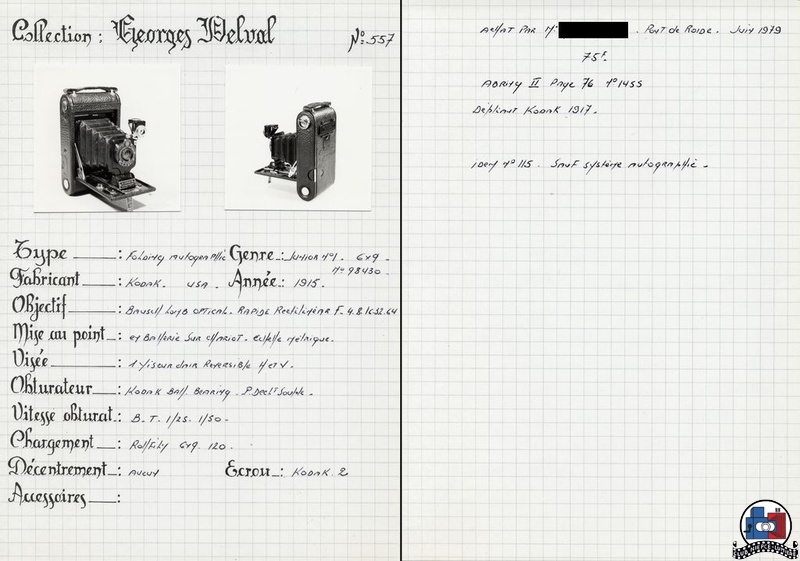 Collection : Georges Delval N°:557
Type : Folding autographic Genre : Junior n°1. 6x9.
n° 98430.
Fabricant : Kodak. USA. Année : 1915.
Objectif : Bausch Lomb optical. Rapide Rectilinéar F. 4.8.16.32.64
Mise au point : et Batterie sur chariot. Echelle métrique.
Visée : 1 Viseur clair Reversible H et V.
Obturateur : Kodak Ball Bearing. P. Declt Souple.
Vitesse obturat. : B. T. 1/25. 1/50.
Chargement : Rollfilm 6x9. 120.
Décentrement : Aucun Ecrou : Kodak. 2
Accessoires :
Achat par Mr . Pont de Roide. Juin 1979
75F.
Abring II Page 76 n° 1455
Dépliant Kodak 1917.
idem n° 115. Sauf système autographic.